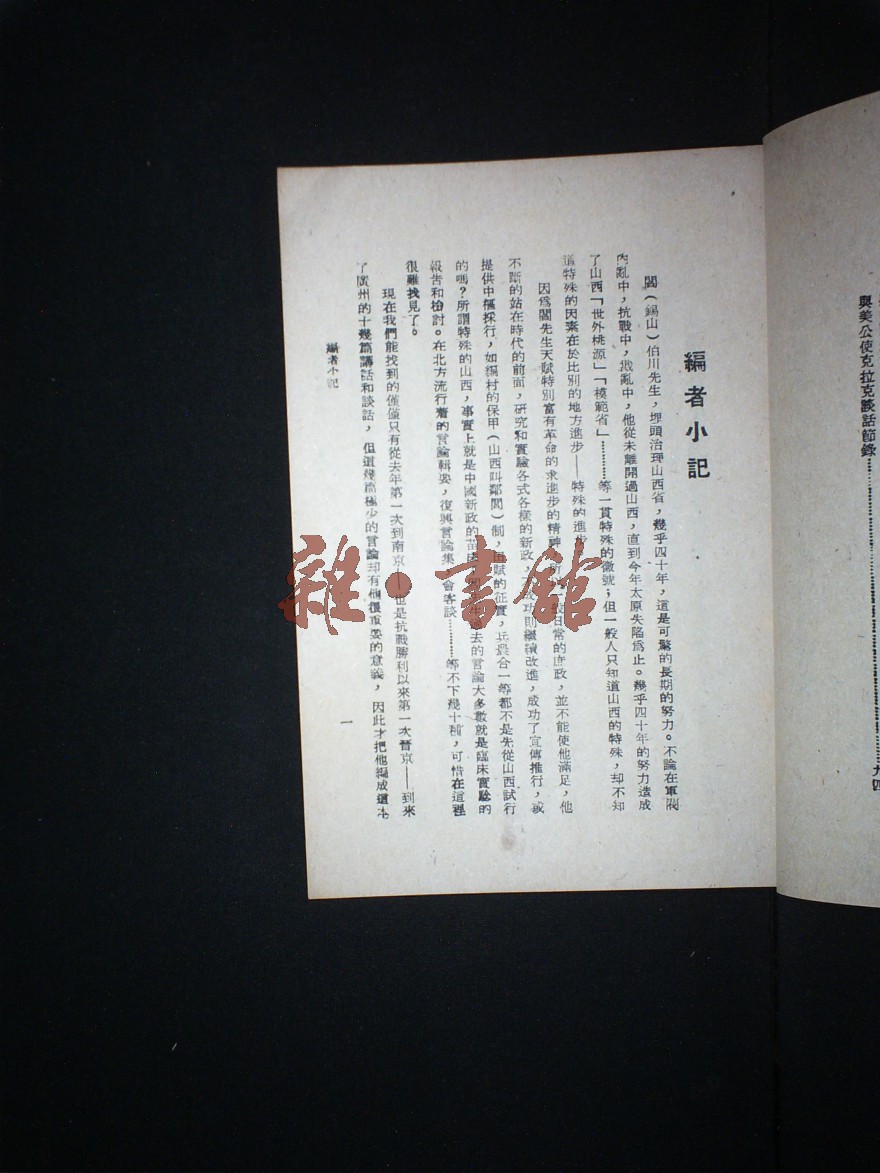 與美公使克拉克談話節錄……九四
編者小記
閻（錫山）伯川先生，埋頭治理山西省，幾乎四十年，這是可驚的長期的努力。不論在軍閥
內亂中，抗戰中，戡亂中，他從未離開過山西，直到今年太原失陷為止。幾乎四十年的努力造成
了山西「世外桃源」「模範省」………等一貫特殊的徽號；但一般人只知道山西的特殊，却不知
道特殊的因素在於比別的地方進步——特殊的進步
因為閻先生天賦特別富有革命的求進步的精神，所日常的庶政，並不能使他滿足，他
不斷的站在時代的前面，研究和實驗各式各樣的新政，成功則繼續改進，成功了宣傳推行，或
提供中樞採行，如編村的保甲（山西叫鄰閭）制，田賦的征實，兵農合一等都不是先從山西試行
的嗎？所謂特殊的山西，事實上就是中國新政的苗過去的言論大多數就是臨床實驗的
報告和檢討。在北方流行着的言論輯要，復興言論集會客談………等不下幾十種，可惜在這裡
很難找見了。
現在我們能找到的僅僅只有從去年第一次到南京——也是抗戰勝利以來第一次晉京——到來
了廣州的十幾篇講話和談話，但這幾篇極少的言論却有他很重要的意義，因此才把他編成這本
編者小記
一
雜·書館